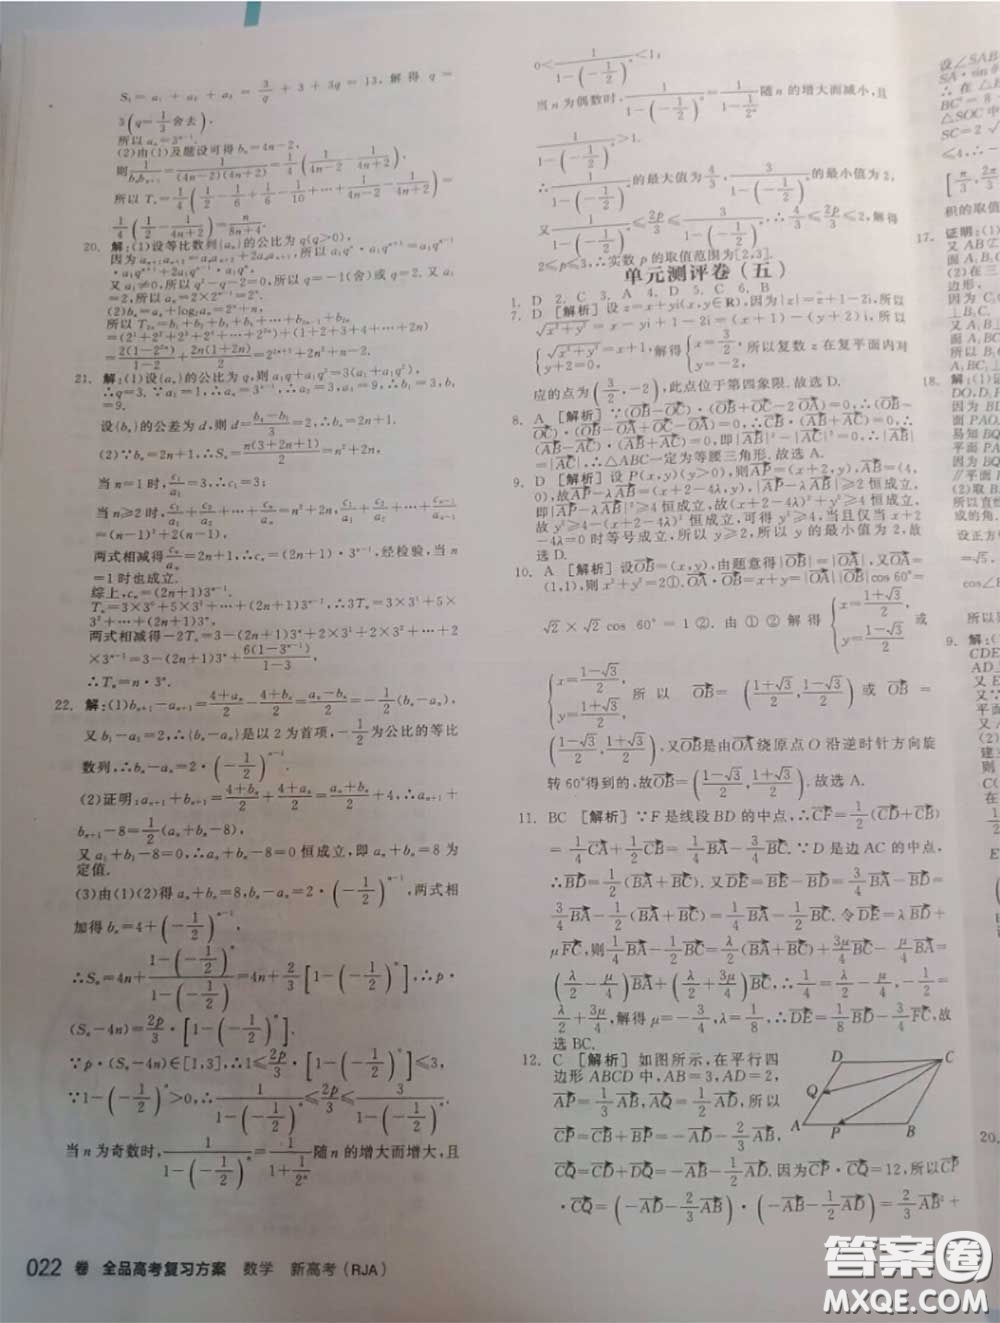 S₃ = a₁ + a₂ + a₃ = 3/q + 3 + 3q = 13, 解得 q =
3(q=1/3舍去),
所以 aₙ=3ⁿ⁻¹.
(2)由(1)及题设可得 bₙ=4n-2,
则 1/(bₙbₙ₊₁) = 1/((4n-2)(4n+2)) = 1/4(1/(4n-2) - 1/(4n+2)),
所以 Tₙ=1/4(1/2-1/6+1/6-1/10+…+1/(4n-2)-1/(4n+2))=
1/4(1/2-1/(4n+2))=n/(8n+4).
20. 解:(1)设等比数列{aₙ}的公比为 q(q>0),
又 a₁≠0, 所以 q²-q-2=0, 所以 q=-1(舍)或 q=2. 又 a₁
=2, 所以 aₙ=2×2ⁿ⁻¹=2ⁿ.
(2)bₙ=aₙ+log₂aₙ=2ⁿ+n,
所以 T₂ₙ=b₁+b₂+b₃+b₄+…+b₂ₙ=
(2¹+2²+2³+2⁴+…+2²ⁿ)+(1+2+3+4+…+2n)=
2(1-2²ⁿ)/(1-2)+2n(1+2n)/2=2²ⁿ⁺¹+2n²+n-2.
21. 解:(1)设{aₙ}的公比为 q, 则 a₁q+a₁q²=3(a₁+a₁q),
设{bₙ}的公差为 d, 则 d=(b₄-b₁)/3=2, ∴bₙ=2n+1.
(2)∵a₁=1, ∴Sₙ=n(3+2n+1)/2=n²+2n,
当 n=1 时, c₁/a₁=3, ∴c₁=3;
当 n≥2 时, c₁/a₁+c₂/a₂+c₃/a₃+…+cₙ/aₙ=n²+2n,
两式相减得 cₙ/aₙ=2n+1, ∴cₙ=(2n+1)·3ⁿ⁻¹, 经检验, 当 n
=1 时也成立.
综上, cₙ=(2n+1)3ⁿ⁻¹.
Tₙ=3×3⁰+5×3¹+…+(2n+1)3ⁿ⁻¹, ∴3Tₙ=3×3¹+5×
3²+…+(2n+1)3ⁿ,
两式相减得-2Tₙ=3-(2n+1)3ⁿ+2×3¹+2×3²+…+2
×3ⁿ⁻¹=3-(2n+1)3ⁿ+6(1-3ⁿ⁻¹)/(1-3),
∴Tₙ=n·3ⁿ.
22. 解:(1)bₙ₊₁-aₙ₊₁=(4+aₙ)/2-(4+bₙ)/2=(aₙ-bₙ)/2=-1/2(bₙ-aₙ),
又 b₁-a₁=2, ∴{bₙ-aₙ}是以 2 为首项, -1/2为公比的等比
数列, ∴bₙ-aₙ=2·(-1/2)ⁿ⁻¹.
(2)证明:aₙ₊₁+bₙ₊₁=(4+bₙ)/2+(4+aₙ)/2=(aₙ+bₙ)/2+4, ∴aₙ₊₁+
bₙ₊₁-8=1/2(aₙ+bₙ-8),
又 a₁+b₁-8=0, ∴aₙ+bₙ-8=0 恒成立, 即 aₙ+bₙ=8 为
定值.
(3)由(1)(2)得 aₙ+bₙ=8, bₙ-aₙ=2·(-1/2)ⁿ⁻¹, 两式相
加得 bₙ=4+(-1/2)ⁿ⁻¹,
∴Sₙ=4n+(1-(-1/2)ⁿ)/(1-(-1/2))=4n+2/3[1-(-1/2)ⁿ], ∴p·
(Sₙ-4n)=2p/3·[1-(-1/2)ⁿ].
∵p·(Sₙ-4n)∈[1,3], ∴1≤2p/3·[1-(-1/2)ⁿ]≤3,
∵1-(-1/2)ⁿ>0, ∴1/(1-(-1/2)ⁿ)≤2p/3≤3/(1-(-1/2)ⁿ).
当 n 为奇数时, 1/(1-(-1/2)ⁿ)=1/(1+1/2ⁿ)随 n 的增大而增大, 且
022 卷 全品高考复习方案 数学 新高考(RJA)
0<1/(1-(-1/2)ⁿ)<1;
当 n 为偶数时, 1/(1-(-1/2)ⁿ)=1/(1-1/2ⁿ)随 n 的增大而减小, 且
1/(1-(-1/2)ⁿ)>1.
∴1/(1-(-1/2)ⁿ)的最大值为4/3, 3/(1-(-1/2)ⁿ)的最小值为 2,
又1/(1-(-1/2)ⁿ)≤2p/3≤3/(1-(-1/2)ⁿ), ∴4/3≤2p/3≤2, 解得
2≤p≤3. ∴实数 p 的取值范围为[2,3].
单元测评卷(五)
1. D 2. C 3. A 4. D 5. C 6. B
7. D [解析] 设 z=x+yi(x,y∈R), 因为|z|=z̄+1-2i, 所以
√(x²+y²)=x-yi+1-2i=(x+1)-(y+2)i, 所以
{√(x²+y²)=x+1, y+2=0, 解得{x=3/2, y=-2, 所以复数 z 在复平面内对
应的点为(3/2,-2), 此点位于第四象限. 故选 D.
8. A [解析] ∵(OB-OC)·(OB+OC-2OA)=0, ∴(OB-
OC)·(OB-OA+OC-OA)=0, ∴CB·(AB+AC)=0, ∴
(AB-AC)·(AB+AC)=0, 即|AB|²-|AC|²=0, 即|AB|
=|AC|, ∴△ABC一定为等腰三角形. 故选 A.
9. D [解析] 设 P(x,y)(y>0), 则AP=(x+2,y), AB=(4,
0), 故AP-λAB=(x+2-4λ,y), 则|AP-λAB|=
√((x+2-4λ)²+y²)≥2恒成立, 故(x+2-4λ)²+y²≥4恒成立,
故 y²≥4-(x+2-4λ)² 恒成立, 可得 y²≥4, 当且仅当 x+2
-4λ=0 时等号成立, 所以 y≥2, 所以 y 的最小值为 2. 故
选 D.
10. A [解析] 设OB=(x,y), 由题意得|OB|=|OA|, 又OA=
(1,1), 则 x²+y²=2①, OA·OB=x+y=|OA||OB|cos 60°=
√2×√2 cos 60°=1 ②. 由①②解得{x=(1+√3)/2, y=(1-√3)/2 或
{x=(1-√3)/2, y=(1+√3)/2, 所以 OB=((1+√3)/2,(1-√3)/2)或 OB=
((1-√3)/2,(1+√3)/2), 又OB是由OA绕原点 O 沿逆时针方向旋
转 60°得到的, 故OB=((1-√3)/2,(1+√3)/2). 故选 A.
11. BC [解析] ∵F 是线段 BD 的中点, ∴CF=1/2(CD+CB)=
1/4CA+1/2CB=1/4(BA-BC)-1/2BC=1/4BA-3/4BC. ∵D 是边 AC 的中点,
∴BD=1/2(BA+BC). 又DE=BE-BD=3/4BA-BD=
3/4BA-1/2(BA+BC)=1/4BA-1/2BC. 令DE=λBD+
μFC, 则1/4BA-1/2BC=λ/2(BA+BC)+3μ/4BC-μ/4BA=
(λ/2-μ/4)BA+(λ/2+3μ/4)BC, ∴1/4=λ/2-μ/4, -1/2=
λ/2+3μ/4, 解得 μ=-3/4, λ=1/8, ∴DE=1/8BD-3/4FC, 故
选 BC.
12. C [解析] 如图所示, 在平行四
边形 ABCD 中, AB=3, AD=2,
AP=1/3AB, AQ=1/2AD, 所以
CP=CB+BP=-AD-2/3AB,
CQ=CD+DQ=-AB-1/2AD. 因为CP·CQ=12, 所以CP
·CQ=(-AD-2/3AB)·(-AB-1/2AD)=2/3AB²+
D C Q A P B
17. 证明:(1)
18. 解:(1)
答案圈
MXQE.COM